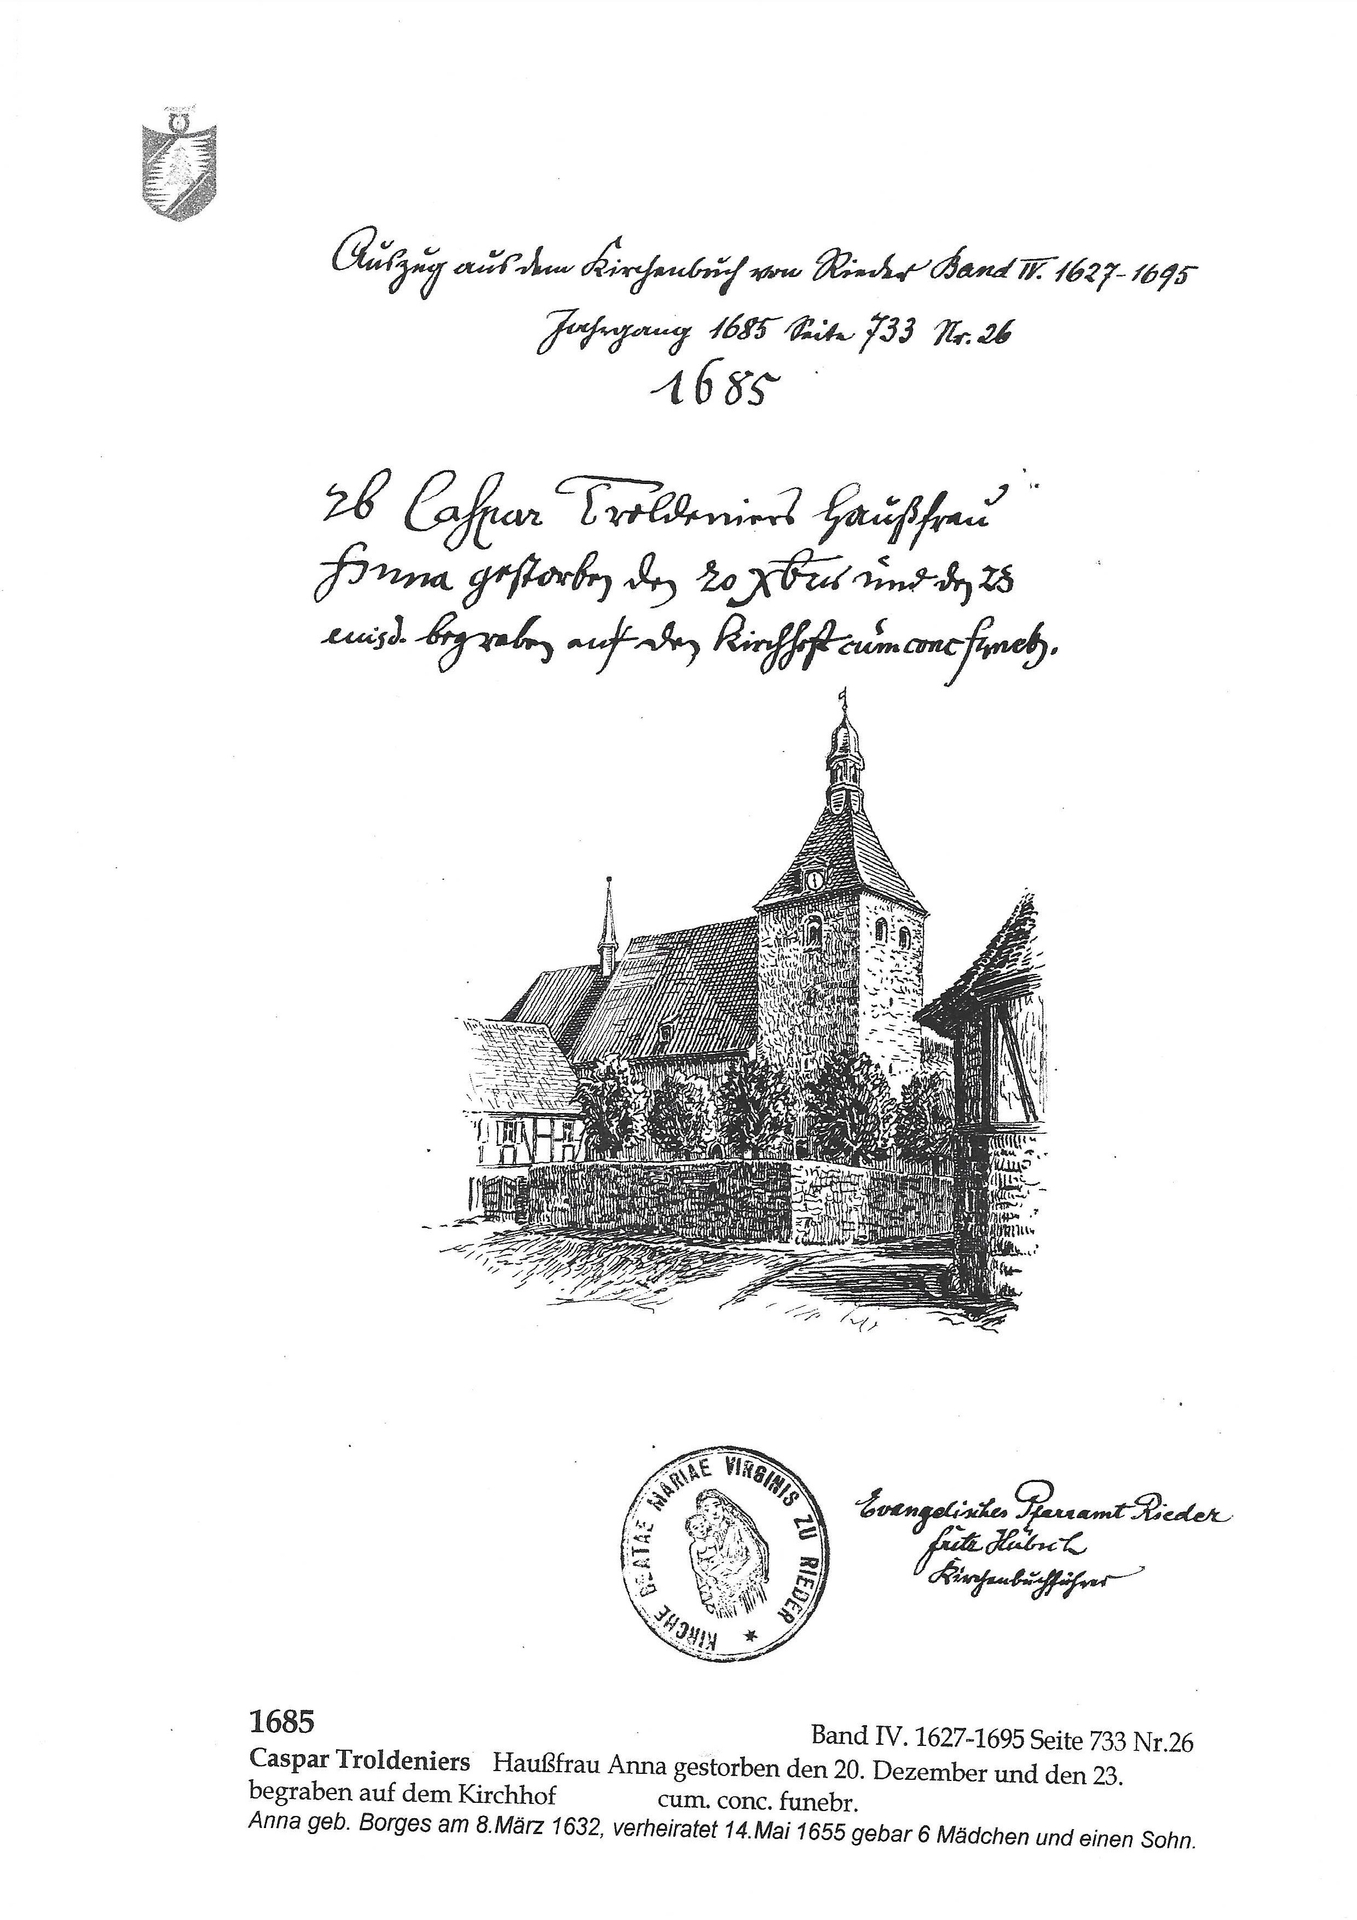 Auszug aus dem Kirchenbuch von Rieder Band IV. 1627-1695
Jahrgang 1685 Seite 733 Nr. 26
1685
26 Caspar Troldeniers Haußfrau
Anna gestorben den 20 Xbris und den 23
begraben auf den Kirchhoff cum conc funeb.
KIRCHE BEATAE MARIAE VIRGINIS ZU RIEDER
Evangelisches Pfarramt Rieder
Fritz Hübsch
Kirchenbuchführer
1685
Band IV. 1627-1695 Seite 733 Nr.26
Caspar Troldeniers Haußfrau Anna gestorben den 20. Dezember und den 23.
begraben auf dem Kirchhof cum. conc. funebr.
Anna geb. Borges am 8.März 1632, verheiratet 14.Mai 1655 gebar 6 Mädchen und einen Sohn.